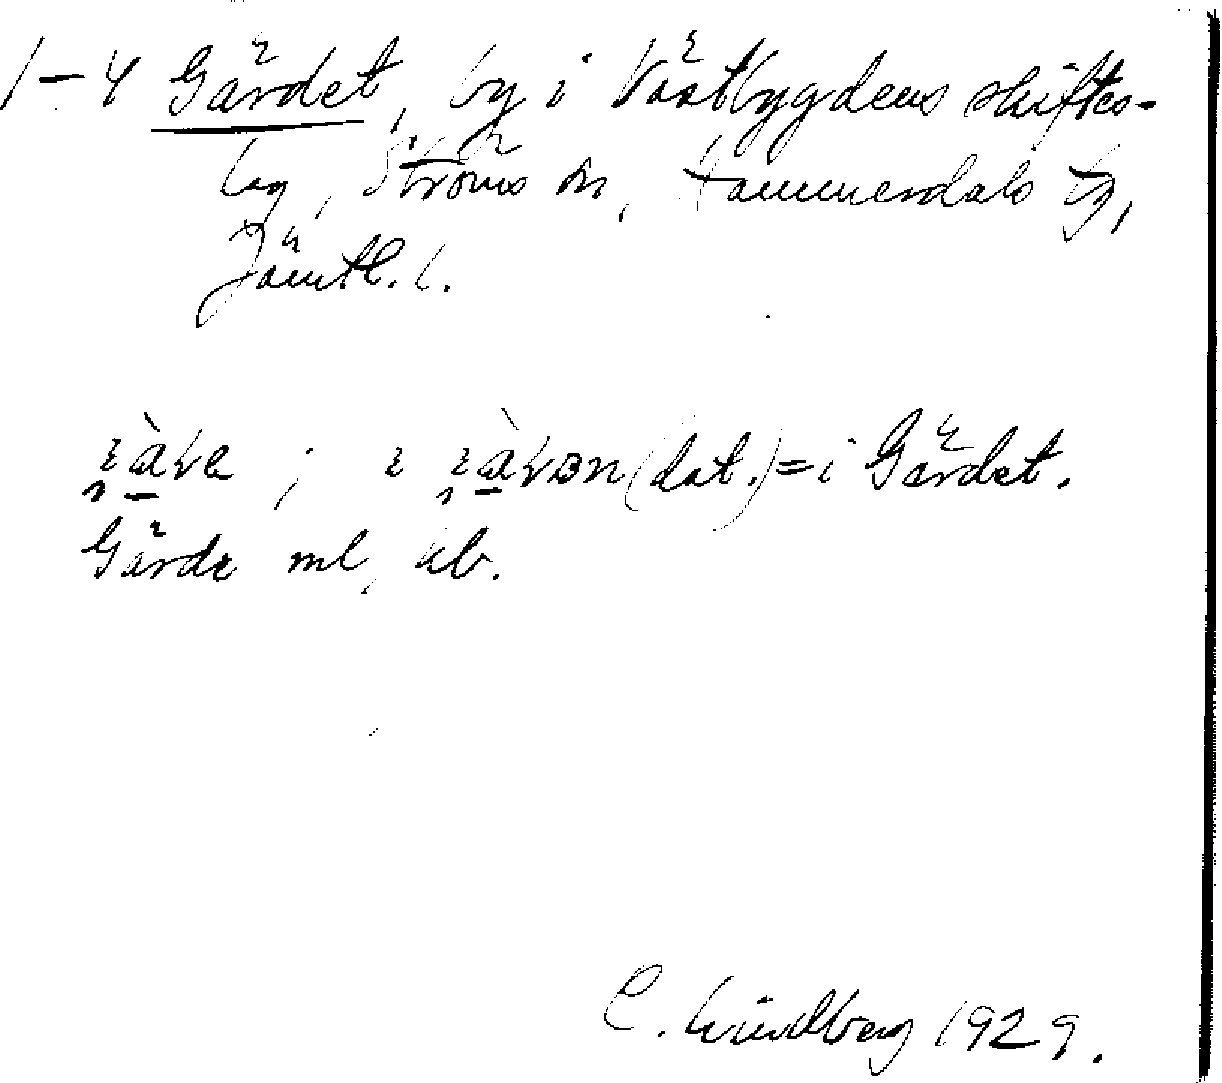 1–4 Gärdet, by i Västbygdens skiftes-
lag, Ströms sn, Hammerdals tg,
Jämtl. l.
(dat.) = i Gärdet.
Gärde ml, ub.
C. Lindberg 1929.